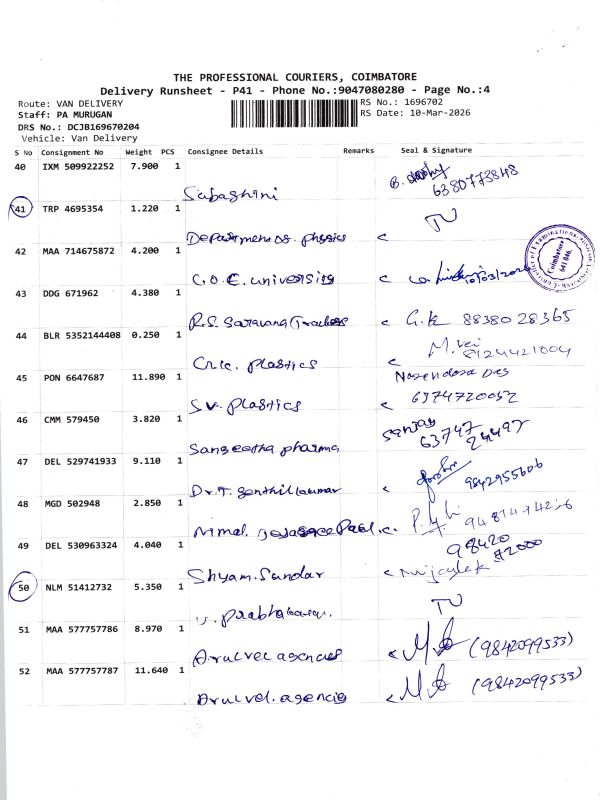 THE PROFESSIONAL COURIERS, COIMBATORE
Delivery Runsheet - P41 - Phone No.:9047080280 - Page No.:4
Route: VAN DELIVERY
RS No.: 1696702
Staff: PA MURUGAN
RS Date: 10-Mar-2026
DRS No.: DCJB169670204
Vehicle: Van Delivery
S No Consignment No Weight PCS Consignee Details Remarks Seal & Signature
40 IXM 509922252 7.900 1
Sabashini
6380773848
41 TRP 4695354 1.220 1
Department of. physics
TU
42 MAA 714675872 4.200 1
C.O.E. university
10/03/2026
Controller of Examinations
Coimbatore
641 046.
43 DDG 671962 4.380 1
R.S. Saravana Traders
G.K 8838028365
44 BLR 5352144408 0.250 1
plastics
8124421004
45 PON 6647687 11.890 1
S.V. plastics
Das
6374720052
46 CMM 579450 3.820 1
Sangeetha pharma
Sanjay
63747
24497
47 DEL 529741933 9.110 1
Dr.T. Senthilkumar
9842955606
48 MGD 502948 2.850 1
Nimal.
49 DEL 530963324 4.040 1
Shyam.Sundar
98420
72000
50 NLM 51412732 5.350 1
V. Prabhakaran.
TU
51 MAA 577757786 8.970 1
Arulvel agencies
(9842099533)
52 MAA 577757787 11.640 1
Arulvel. agencie
(9842099533)